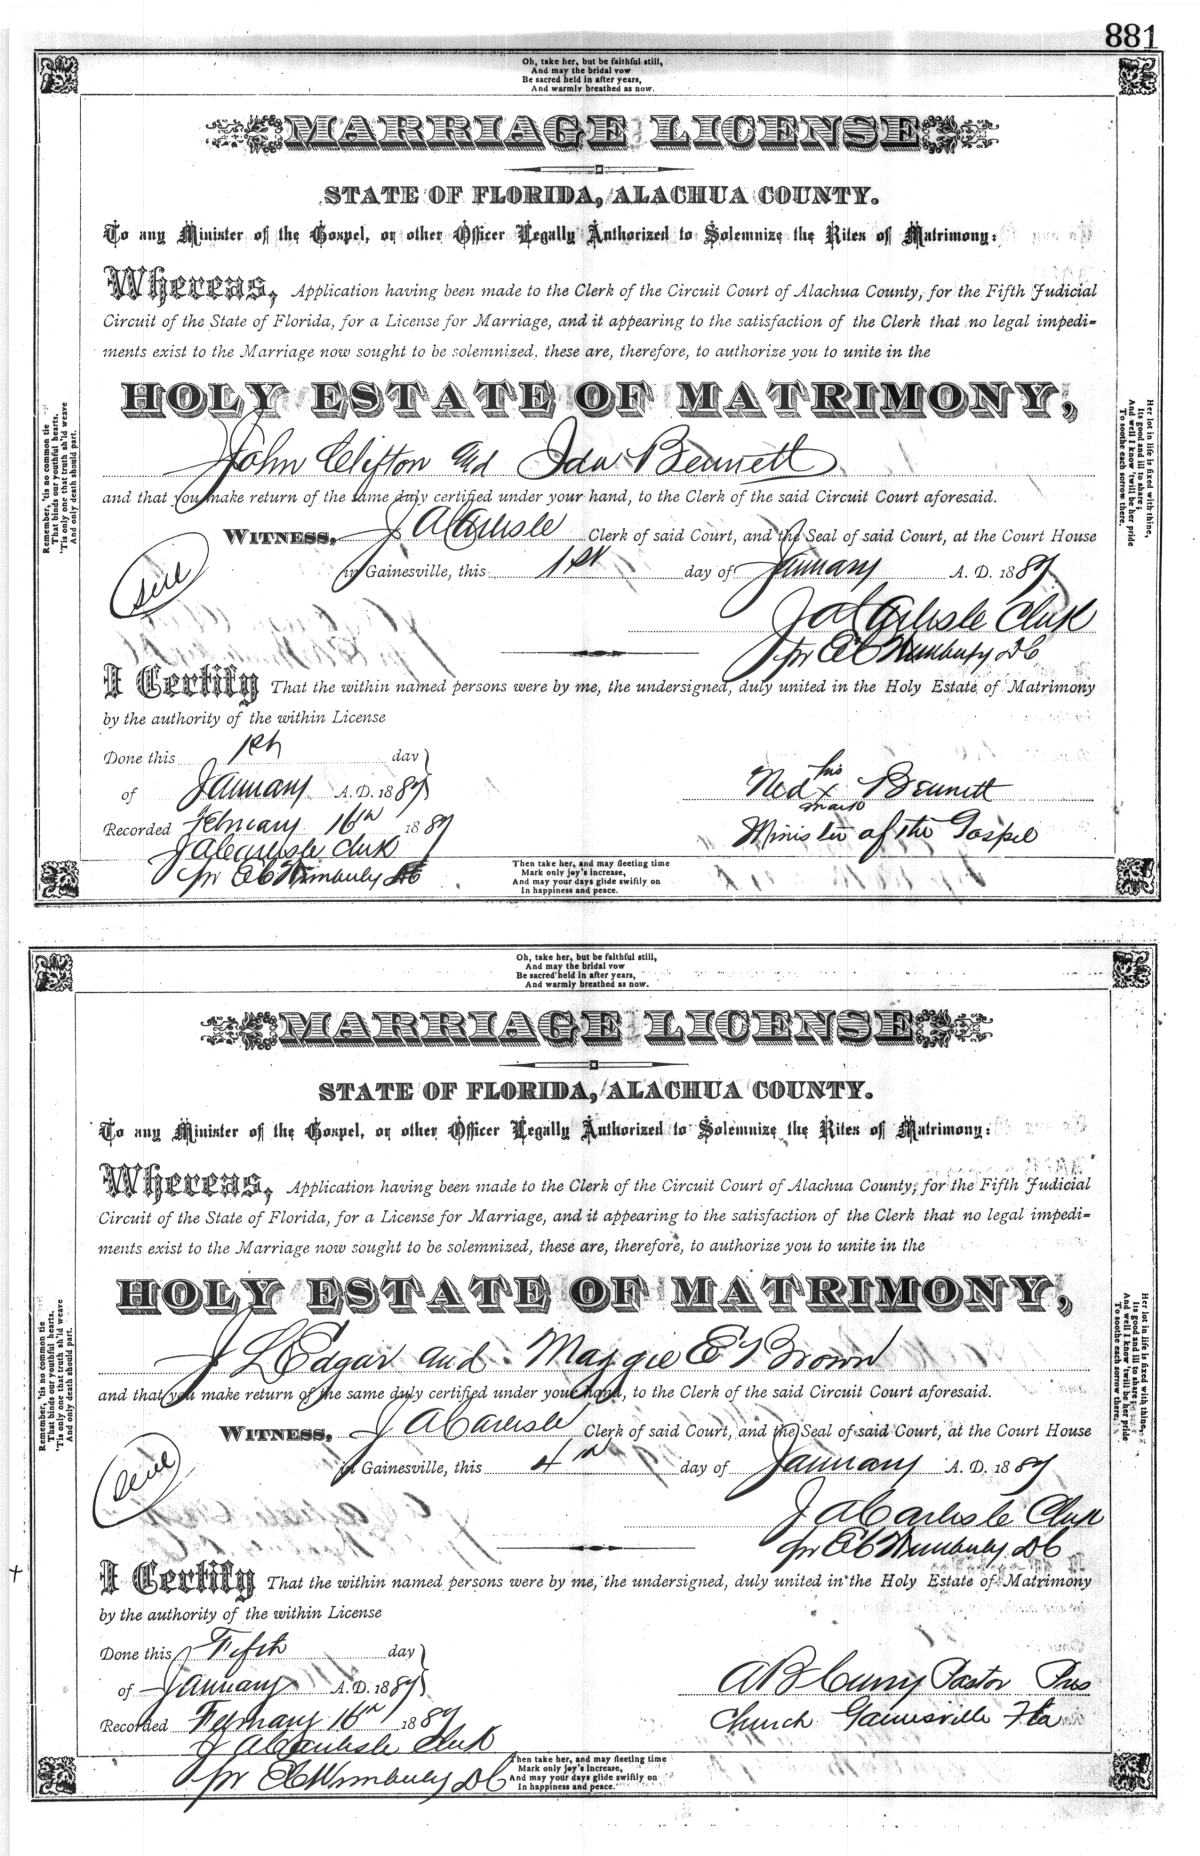 881
Oh, take her, but be faithful still,
And may the bridal vow
Be sacred held in after years,
And warmly breathed as now.
MARRIAGE LICENSE
STATE OF FLORIDA, ALACHUA COUNTY.
To any Minister of the Gospel, or other Officer Legally Authorized to Solemnize the Rites of Matrimony:
Whereas, Application having been made to the Clerk of the Circuit Court of Alachua County, for the Fifth Judicial
Circuit of the State of Florida, for a License for Marriage, and it appearing to the satisfaction of the Clerk that no legal impedi-
ments exist to the Marriage now sought to be solemnized, these are, therefore, to authorize you to unite in the
HOLY ESTATE OF MATRIMONY,
John Clifton and Ida Bennett
and that you make return of the same duly certified under your hand, to the Clerk of the said Circuit Court aforesaid.
WITNESS, J A Carlisle Clerk of said Court, and the Seal of said Court, at the Court House
in Gainesville, this 1st day of January A. D. 1887
J A Carlisle Clerk
pr E C Wimberly DC
I Certify That the within named persons were by me, the undersigned, duly united in the Holy Estate of Matrimony
by the authority of the within License
Done this 1st day
of January A. D. 1887
Recorded February 16th 1887
J A Carlisle Clerk
pr E C Wimberly DC
Ned his x mark Bennett
Minister of the Gospel
Remember, 'tis no common tie
That binds our youthful hearts,
'Tis only one that truth sh'ld weave
And only death should part.
Her lot in life is fixed with thine,
Its good and ill to share;
And well I know 'twill be her pride
To soothe each sorrow there.
Then take her, and may fleeting time
Mark only joy's increase,
And may your days glide swiftly on
In happiness and peace.
Oh, take her, but be faithful still,
And may the bridal vow
Be sacred held in after years,
And warmly breathed as now.
MARRIAGE LICENSE
STATE OF FLORIDA, ALACHUA COUNTY.
To any Minister of the Gospel, or other Officer Legally Authorized to Solemnize the Rites of Matrimony:
Whereas, Application having been made to the Clerk of the Circuit Court of Alachua County, for the Fifth Judicial
Circuit of the State of Florida, for a License for Marriage, and it appearing to the satisfaction of the Clerk that no legal impedi-
ments exist to the Marriage now sought to be solemnized, these are, therefore, to authorize you to unite in the
HOLY ESTATE OF MATRIMONY,
J L Edgar and Maggie E Brown
and that you make return of the same duly certified under your hand, to the Clerk of the said Circuit Court aforesaid.
WITNESS, J A Carlisle Clerk of said Court, and the Seal of said Court, at the Court House
in Gainesville, this 4th day of January A. D. 1887
J A Carlisle Clerk
pr E C Wimberly DC
I Certify That the within named persons were by me, the undersigned, duly united in the Holy Estate of Matrimony
by the authority of the within License
Done this Fifth day
of January A. D. 1887
Recorded February 16th 1887
J A Carlisle Clerk
pr E C Wimberly DC
A B Curry Pastor Pres
Church Gainesville Fla
Remember, 'tis no common tie
That binds our youthful hearts.
'Tis only one that truth sh'ld weave
And only death should part.
Her lot in life is fixed with thine,
Its good and ill to share;
And well I know 'twill be her pride
To soothe each sorrow there.
Then take her, and may fleeting time
Mark only joy's increase,
And may your days glide swiftly on
In happiness and peace.